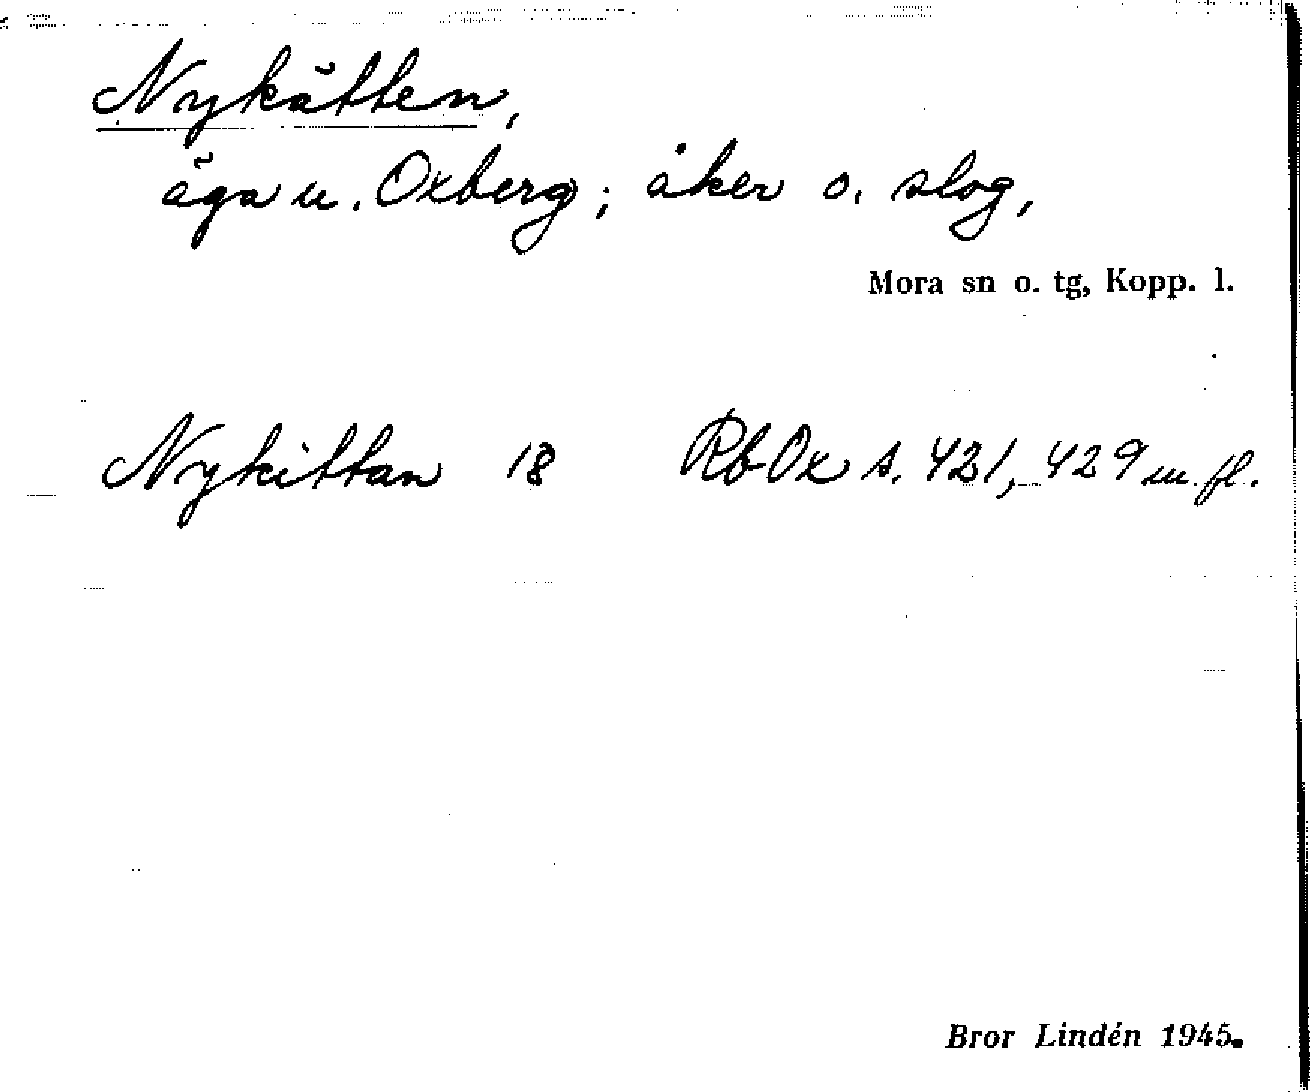 Nykätten,
äga u. Oxberg; åker o. slog,
Mora sn o. tg, Kopp. l.
Nykittan 18 RbOx s. 421, 429 m. fl.
Bror Lindén 1945.